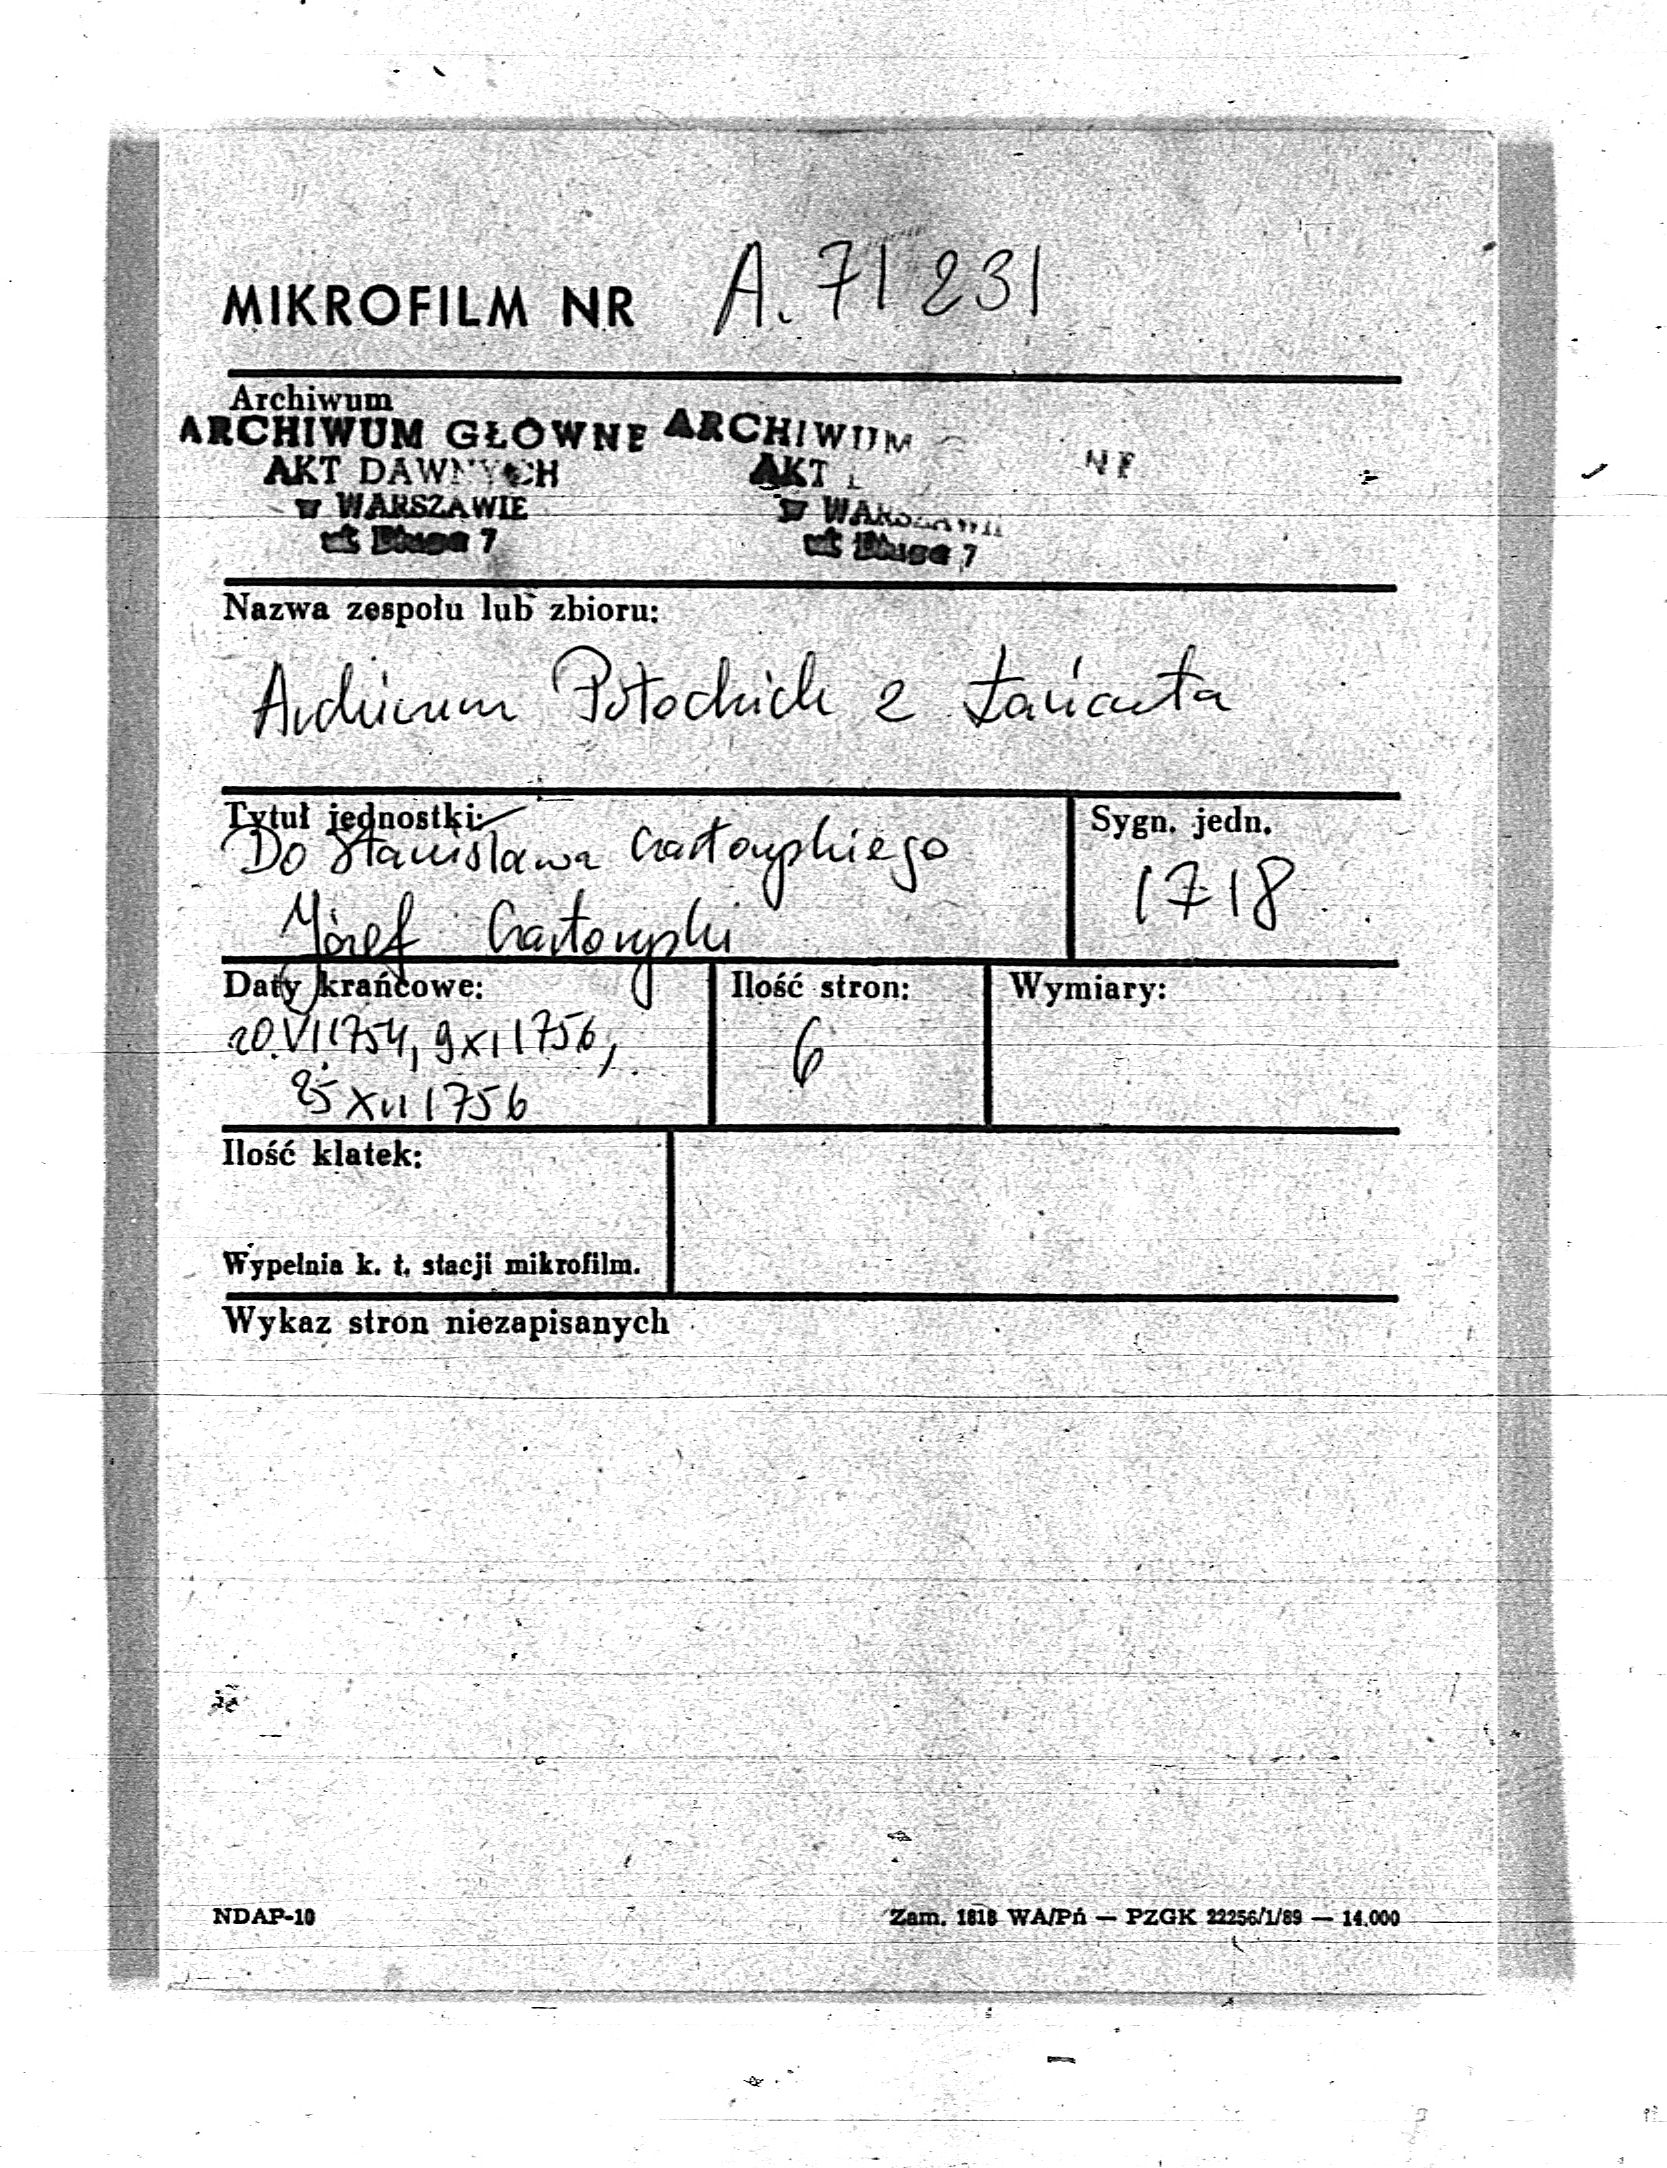 MIKROFILM NR A. 71231
Archiwum
ARCHIWUM GŁÓWNE ARCHIWUM
AKT DAWNYCH AKT
w WARSZAWIE w WARSZAWIE
ul. Długa 7 ul. Długa 7
Nazwa zespołu lub zbioru:
Archiwum Potockich z Łańcuta
Tytuł jednostki: Sygn. jedn.
Do Stanisława Czartoryskiego 1718
Józef Czartoryski
Daty krańcowe: Ilość stron: Wymiary:
20.VI 1754, 9 XI 1756, 6
25 XII 1756
Ilość klatek:
Wypełnia k. t. stacji mikrofilm.
Wykaz stron niezapisanych
NDAP-10 Zam. 1818 WA/Pń — PZGK 22256/1/89 — 14.000